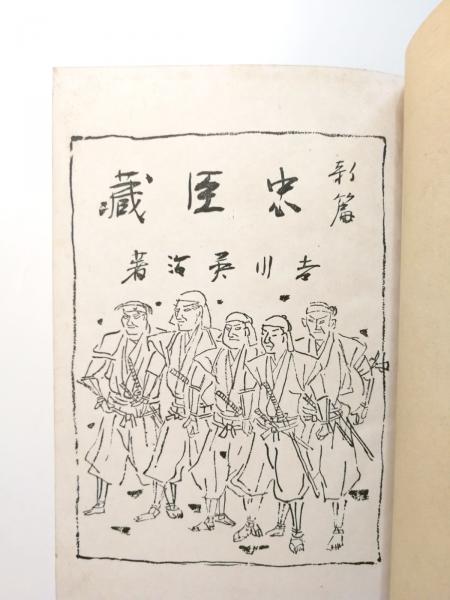 新篇
忠臣藏
吉川英治著